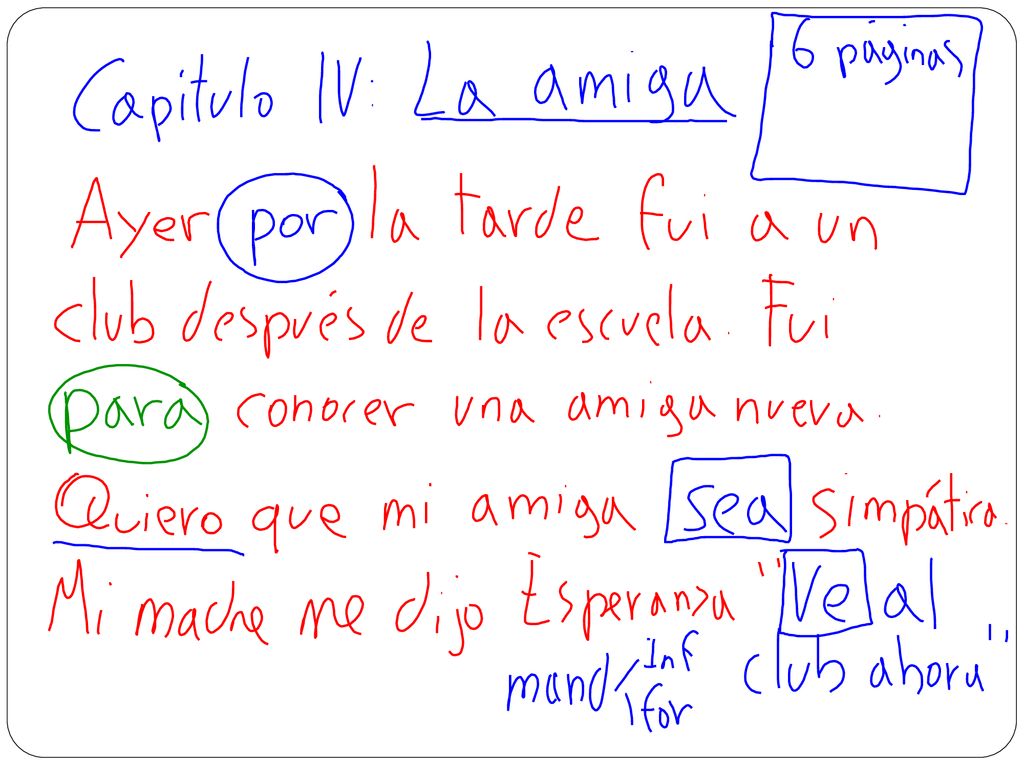 Capítulo IV: La amiga
6 páginas
Ayer por la tarde fui a un
club después de la escuela. Fui
para conocer una amiga nueva.
Quiero que mi amiga sea simpática.
Mi madre me dijo Esperanza "Ve al
club ahora"
mand/Inf
\for